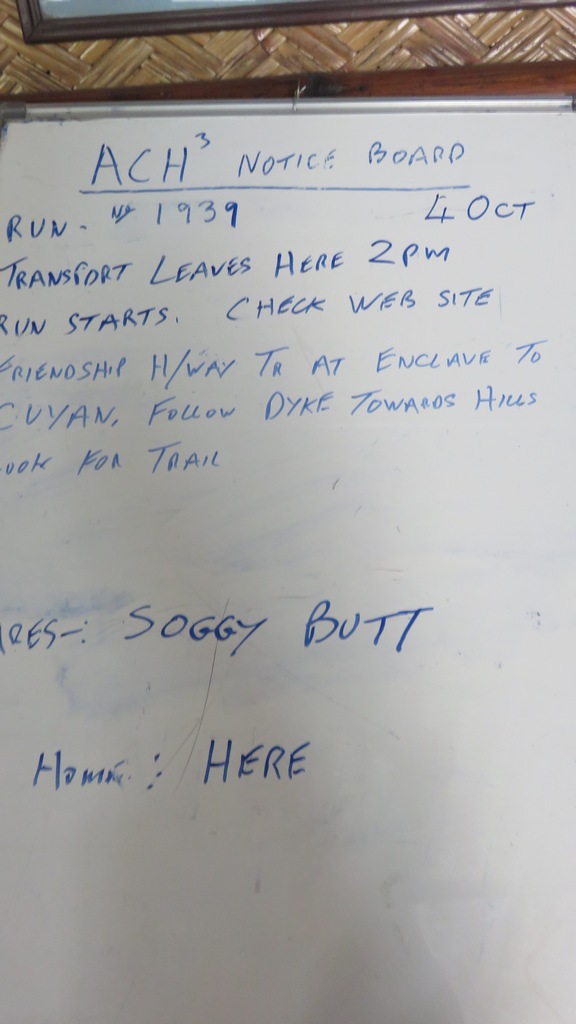 ACH³ NOTICE BOARD
RUN - No 1939 4 OCT
TRANSPORT LEAVES HERE 2PM
RUN STARTS. CHECK WEB SITE
FRIENDSHIP H/WAY TR AT ENCLAVE TO
CUYAN, FOLLOW DYKE TOWARDS HILLS
LOOK FOR TRAIL
ARES-: SOGGY BUTT
Home : HERE